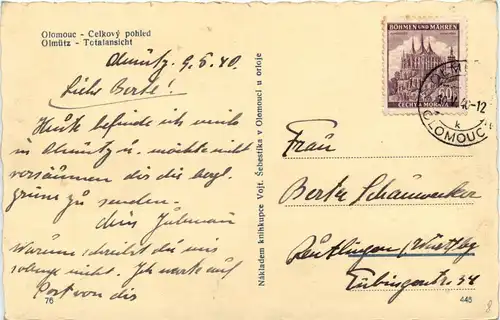 Olomouc - Celkový pohled
Olmütz - Totalansicht
Olmütz, 9.5.40.
Liebe Berte!
Heute befinde ich mich
in Olmütz u. möchte nicht
versäumen dir die
zu senden.
dein
Warum schreibst du mir
solange nicht. Ich warte auf
Post von dir
76
Nákladem knihkupce Vojt. Šebestíka v Olomouci u orloje
BÖHMEN UND MÄHREN
ČECHY A MORAVA
OLOMOUC
Frau
Berta Schauwecker
Reutlingen /Württbg
Tübingerstr 54
446